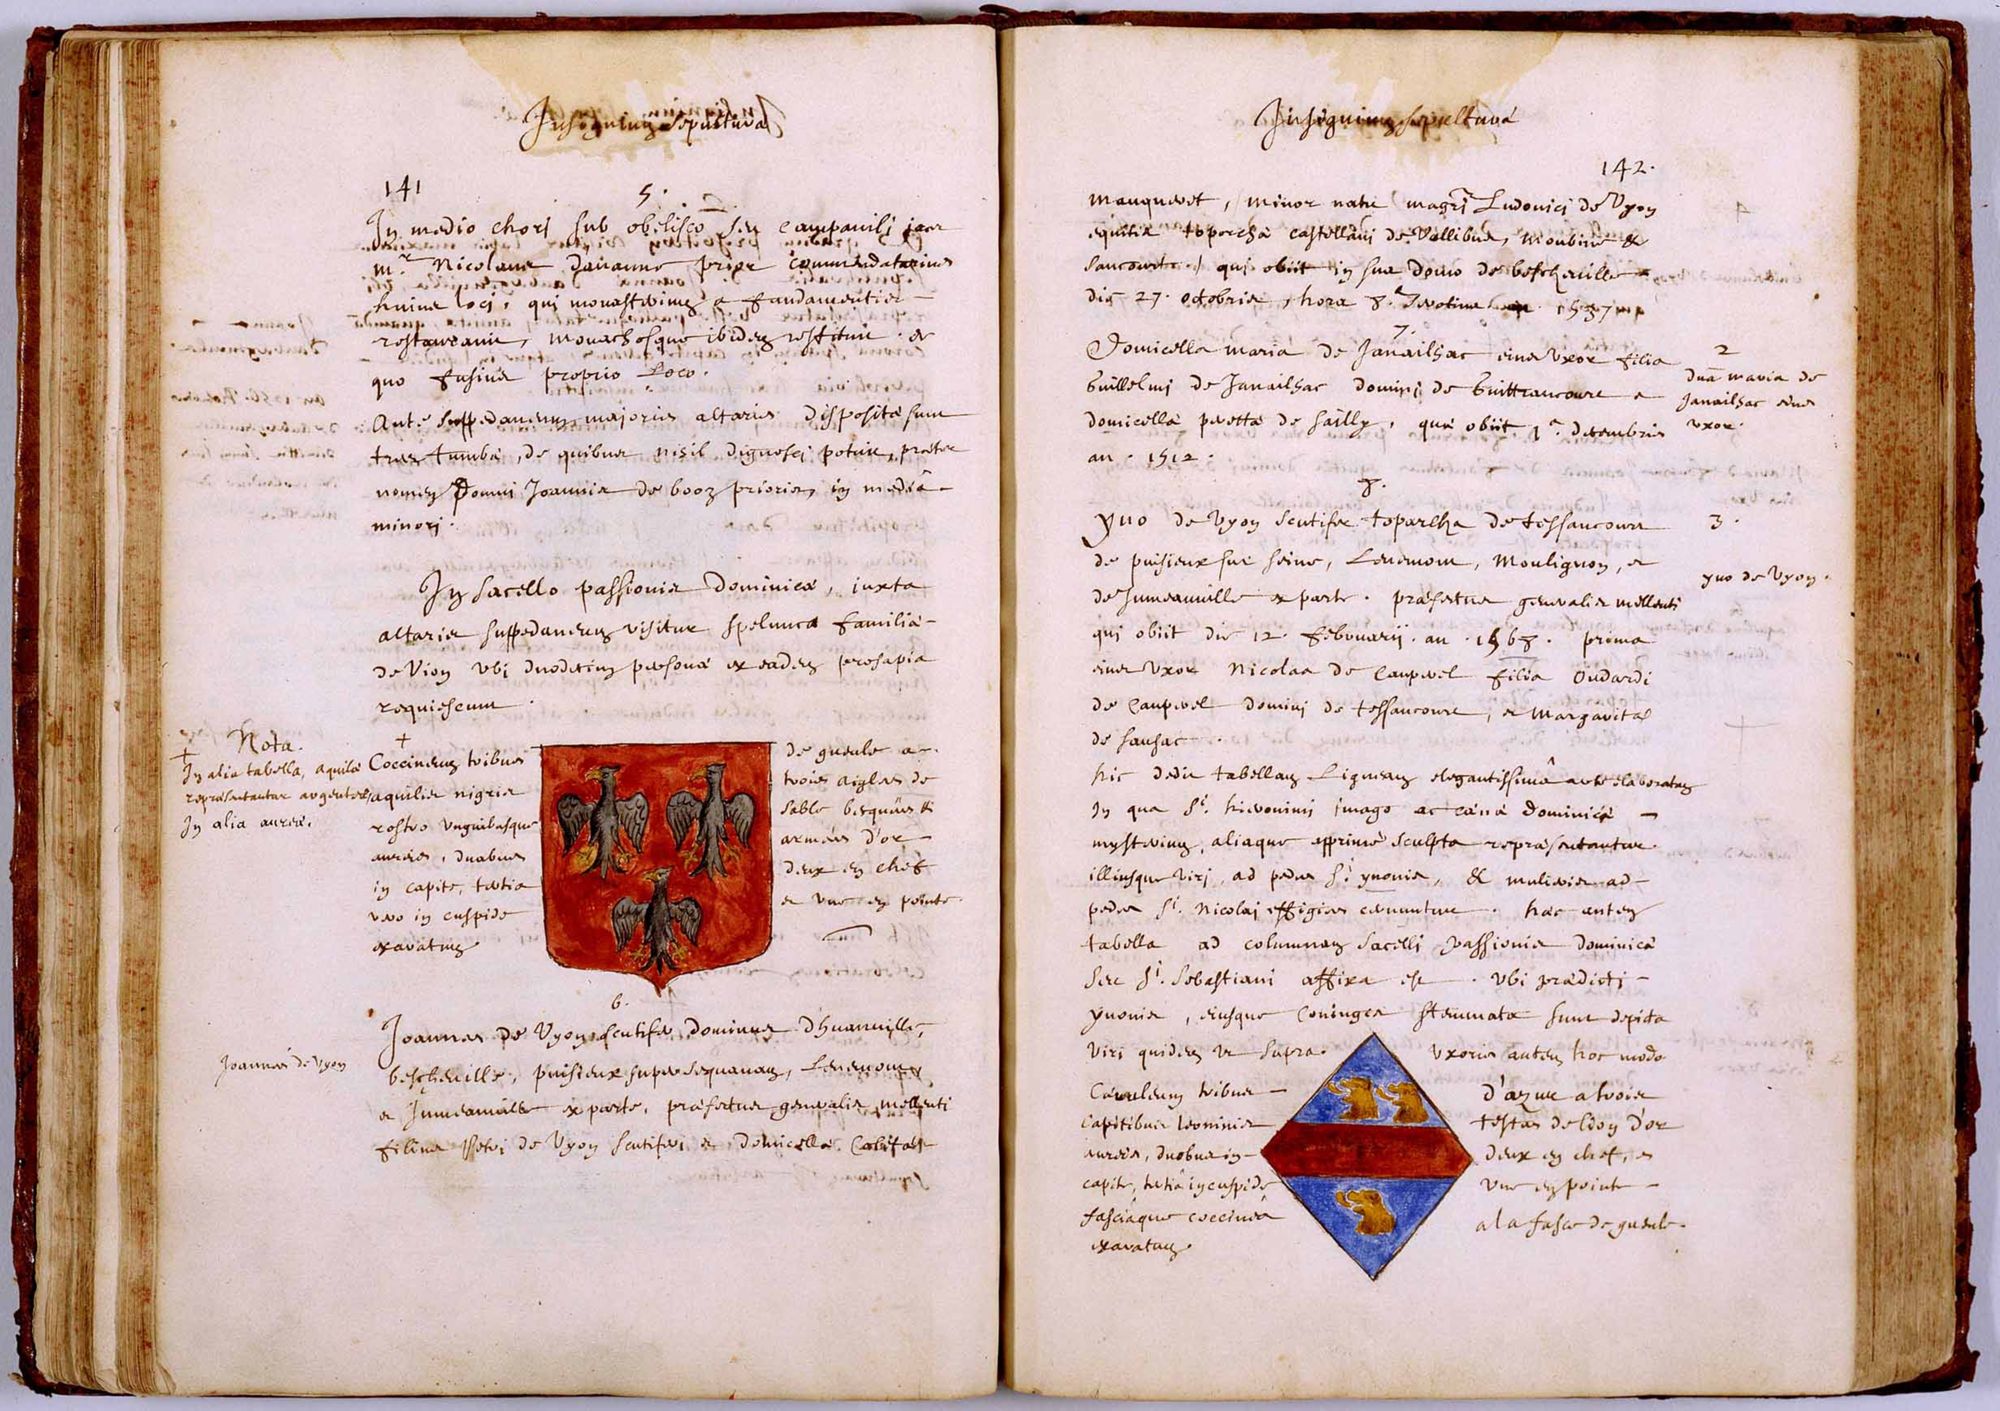 Insignium sepulturæ
141
5.
In medio chori sub obelisco seu campanili jacet
m.r Nicolaus Davanne prior commendatarius
huius loci, qui monasterium a fundamentis
restauravit, monachosque ibidem restituit. de
quo fusius proprio Loco.
Ante suppedaneum majoris altaris dispositæ sunt
tres tumbæ, de quibus nihil dignosci potuit, præter
nomen Domni Joannis de booz prioris, in mediâ
minori.
In sacello passionis Dominicæ, juxta
altaris suppedaneum visitur spelunca familiæ
de Vion ubi duodecim personæ ex eadem prosapia
requiescunt.
Nota.
+ In alia tabella, aquilæ
repræsentantur argenteæ
In alia aureæ.
+
Coccineum tribus
aquilis nigris
rostro unguibusque
aureis, duabus
in capite, tertia
vero in cuspide
exaratum
de gueule a
trois aigles de
sable becquées &
armées d'or
deux en chef
et une en pointe.
6.
Joannes de Vyon
Joannes de Vyon scutifer dominus d'huanville,
bescheville, puiseux super sequanam,
et Jumeauville ex parte, præfectus generalis mellenti
filius Petri de Vyon scutiferi et domicellæ
Insignium sepulturæ
142.
mauquevet, minor natu magri Ludovici de Vyon
equitis toparchæ castellani de Vallibus, &
qui obiit in sua domo de bescheville
die 27. octobris, hora 8.a 1537
7.
Domicella maria de Janailhac eius uxor filia
Guillelmi de Janailhac domini de Guittrancourt et
domicellæ perettæ de sailly, quæ obiit 1.a decembris
an. 1512.
2
Dna maria de
Janailhac eius
uxor.
8.
yuo de Vyon scutifer toparcha de tessancourt
de puiseux sur seine, Moulignon, et
de Jumeauville ex parte. præfectus generalis mellenti
qui obiit die 12. februarij. an. 1568. prima
eius uxor Nicolaa de Canpvel filia Oudardi
de Canpvel domini de tessancourt, et Margaritæ
de sansac.
3.
yuo de Vyon.
hic dedit tabellam Ligneam elegantissimâ arte elaboratam
In qua S.ti hieronimi imago ac cænæ dominicæ
mysterium, aliaque apprimè sculpta repræsentantur.
illiusque viri, ad pedes S.ti yuonis, & mulieris ad
pedes S.ti Nicolaj effigies cernuntur. hæc autem
tabella ad columnam sacelli passionis dominicæ
seu S.ti Sebastiani affixa est. ubi prædicti
yuonis, eiusque coniugis stemmata sunt depicta
Viri quidem ut supra.
uxoris autem hoc modo
Cæruleum tribus
capitibus leoninis
aureis, duobus in
capite, tertiâ in cuspide
fasciâque coccineâ
exaratum.
D'azur a trois
testes de lion d'or
deux en chef, et
une en pointe
a la fasce de gueule.